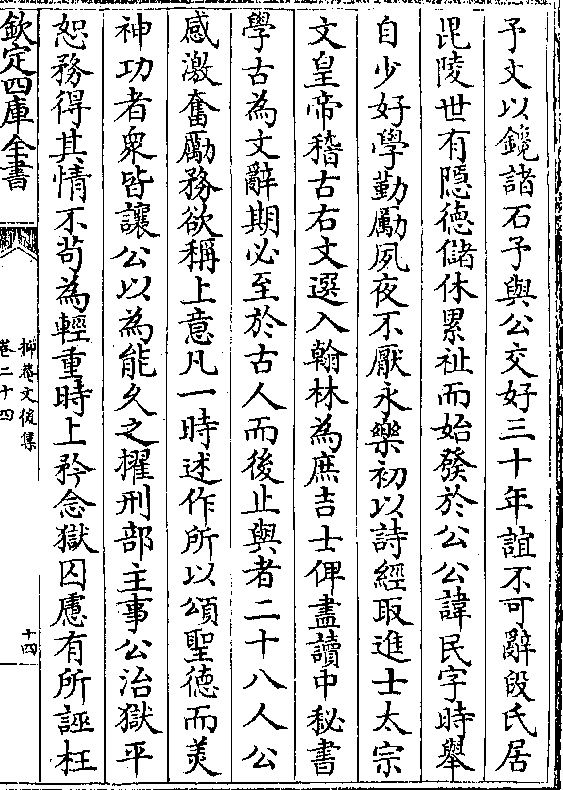 予文以鏡諸石予與公交好三十年誼不可辭段氏居
毘陵世有隱德儲休累祉而始發於公公諱民字時舉
自少好學勤勵夙夜不厭永樂初以詩經取進士太宗
文皇帝稽古右文選入翰林為庶吉士俾盡讀中秘書
學古為文辭期必至於古人而後止與者二十八人公
感激奮勵務欲稱上意凡一時述作所以頌聖德而美
神功者衆皆讓公以為能久之擢刑部主事公治獄平
恕務得其情不苟為輕重時上矜念獄囚慮有所誣枉
欽定四庫全書
抑菴文後集
卷二十四
十四